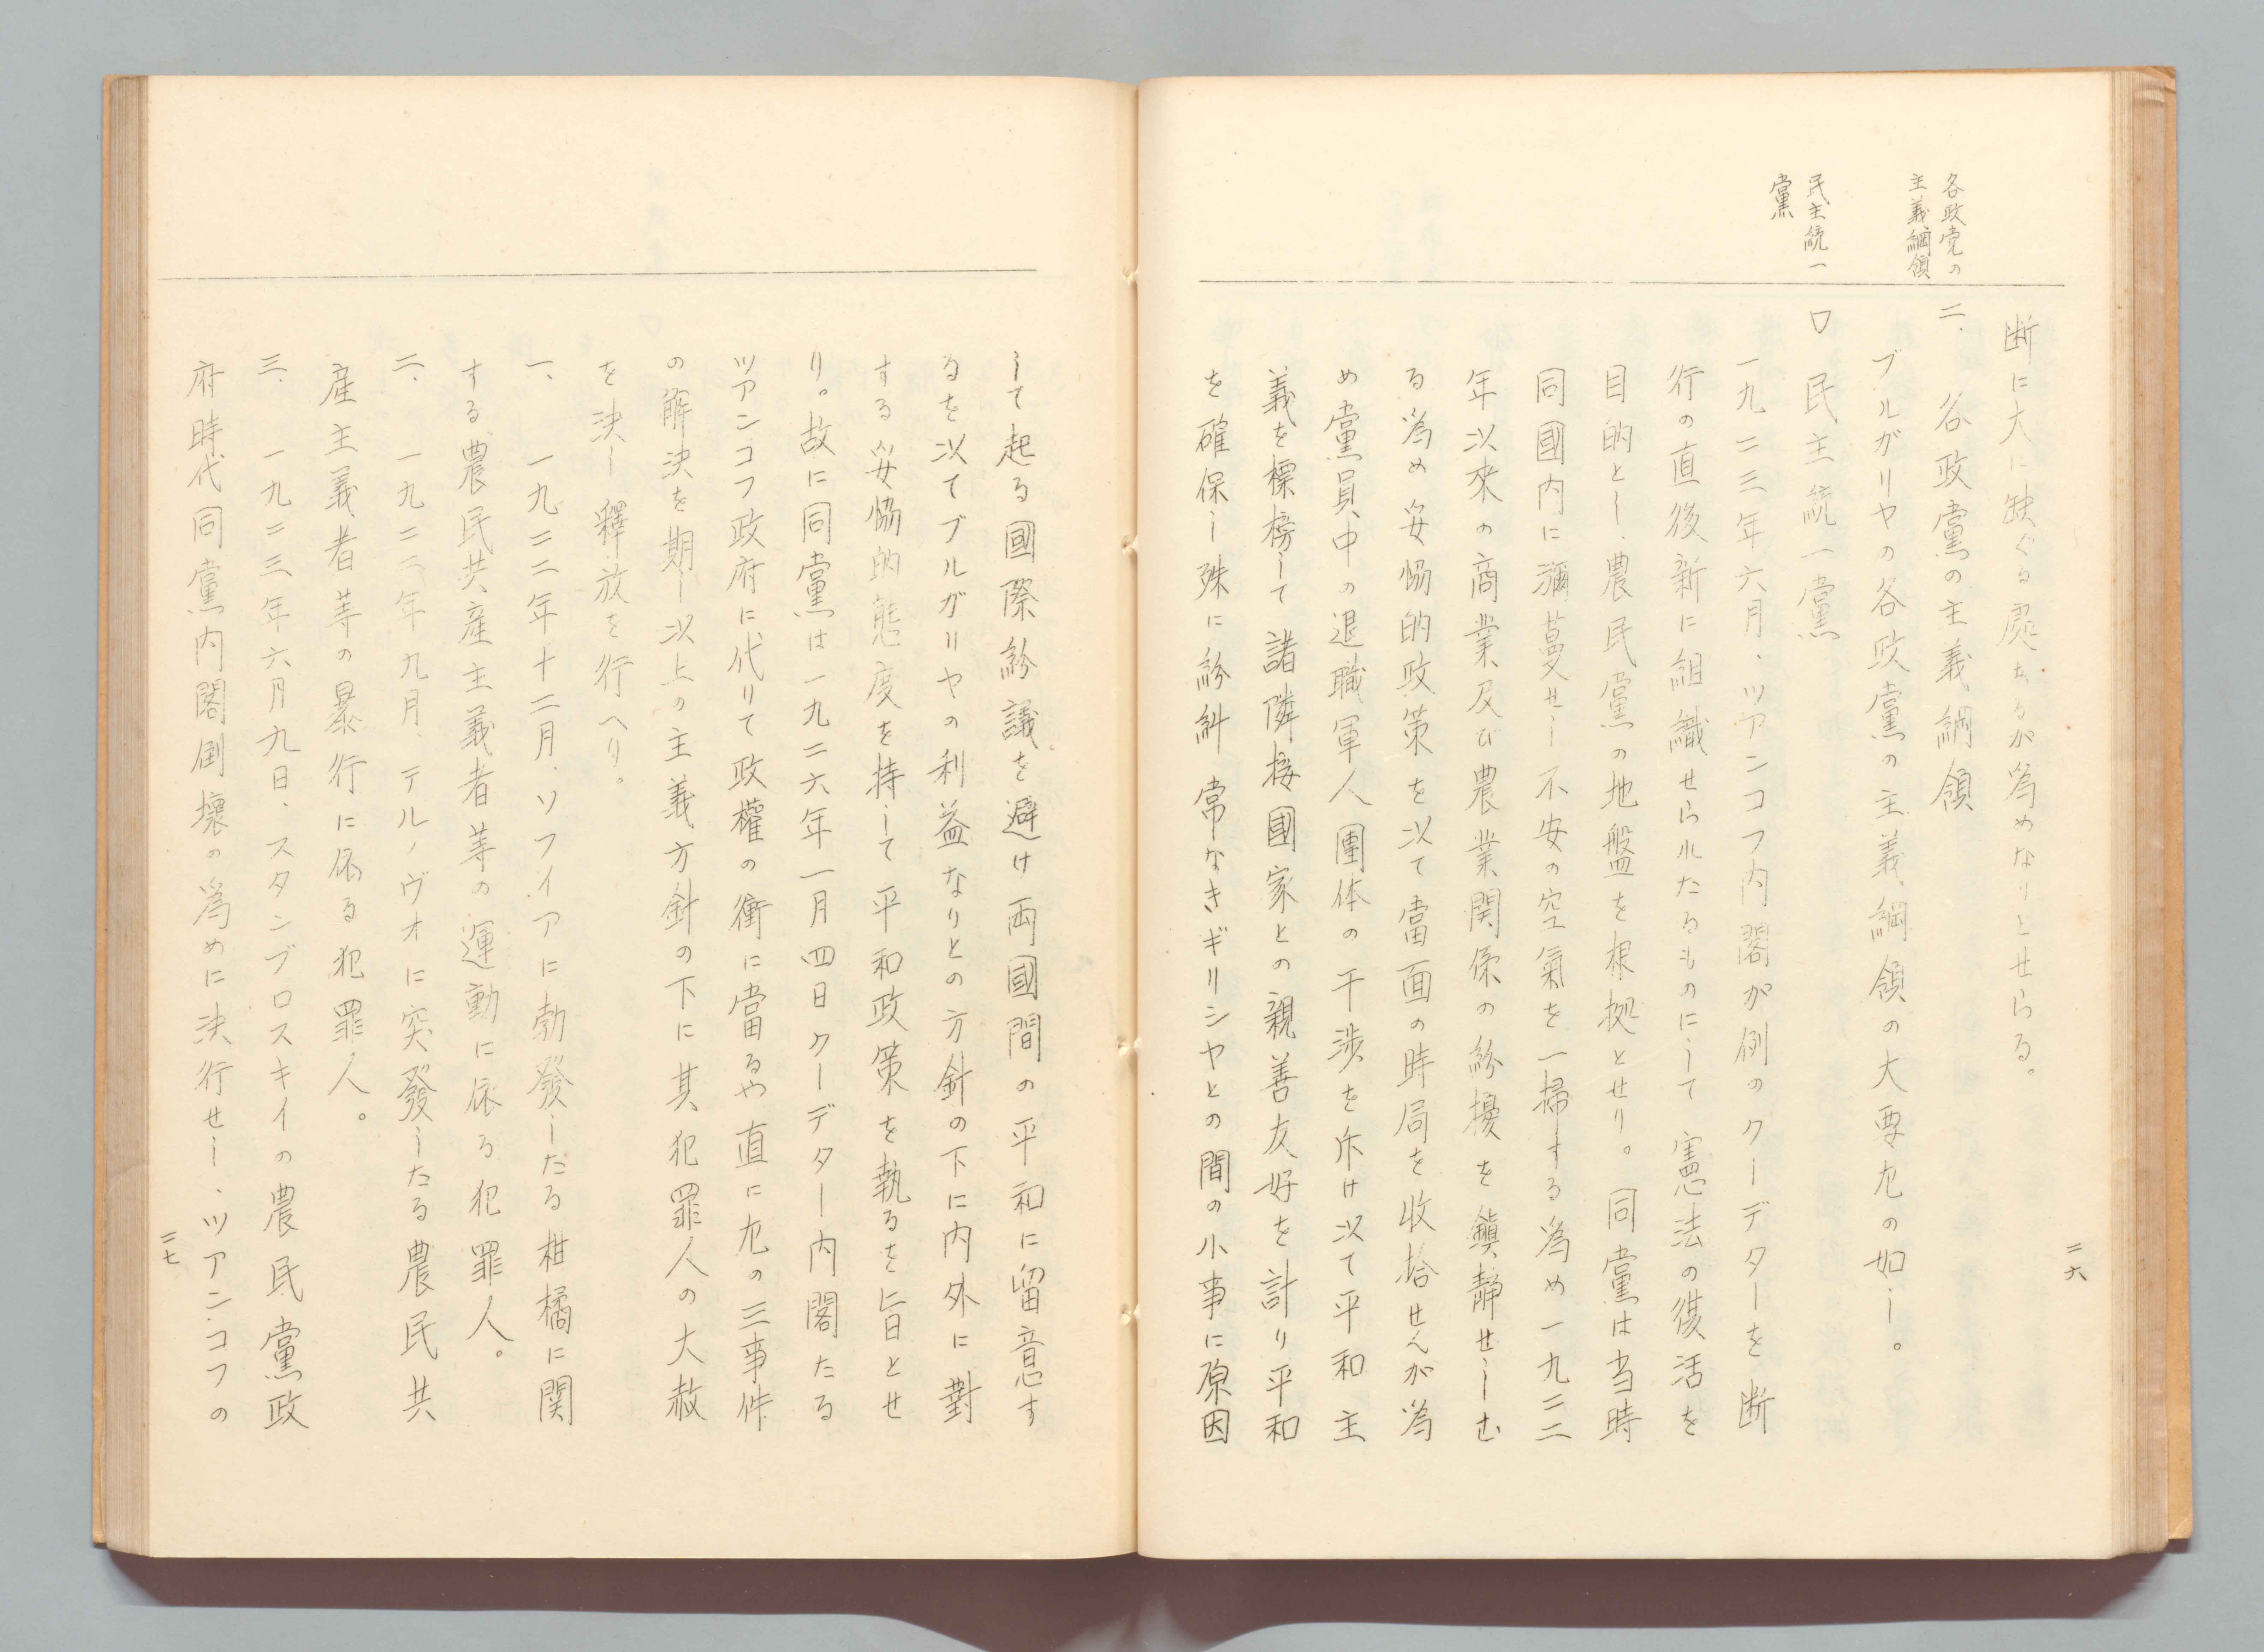 各政党の
主義綱領
民主統一
黨
断に大に缺ぐる處あるが為めなりとせらる。
二、各政黨の主義綱領
ブルガリヤの各政黨の主義綱領の大要左の如し。
口 民主統一黨
一九二三年六月、ツアンコフ内閣が例のクーデターを断
行の直後新に組織せられたるものにして憲法の復活を
目的とし、農民黨の地盤を根拠とせり。同黨は当時
同國内に瀰蔓せし不安の空氣を一掃する為め一九二二
年以來の商業及び農業関係の紛擾を鎭靜せしむ
る為め妥協的政策を以て當面の時局を收拾せんが為
め黨員中の退職軍人團体の干渉を斥け以て平和主
義を標榜して諸隣接國家との親善友好を計り平和
を確保し殊に紛糾常なきギリシヤとの間の小事に原因
二六
して起る國際紛議を避け両國間の平和に留意す
るを以てブルガリヤの利益なりとの方針の下に内外に對
する妥協的態度を持して平和政策を執るを旨とせ
り。故に同黨は一九二六年一月四日クーデター内閣たる
ツアンコフ政府に代りて政權の衝に當るや直に左の三事件
の解決を期し以上の主義方針の下に其犯罪人の大赦
を決し釋放を行へり。
一、一九二二年十二月、ソフイアに勃發したる柑橘に関
する農民共産主義者等の運動に依る犯罪人。
二、一九二二年九月、テルノヴオに突發したる農民共
産主義者等の暴行に依る犯罪人。
三、一九二三年六月九日、スタンブロスキイの農民黨政
府時代同黨内閣倒壊の為めに決行せし、ツアンコフの
二七